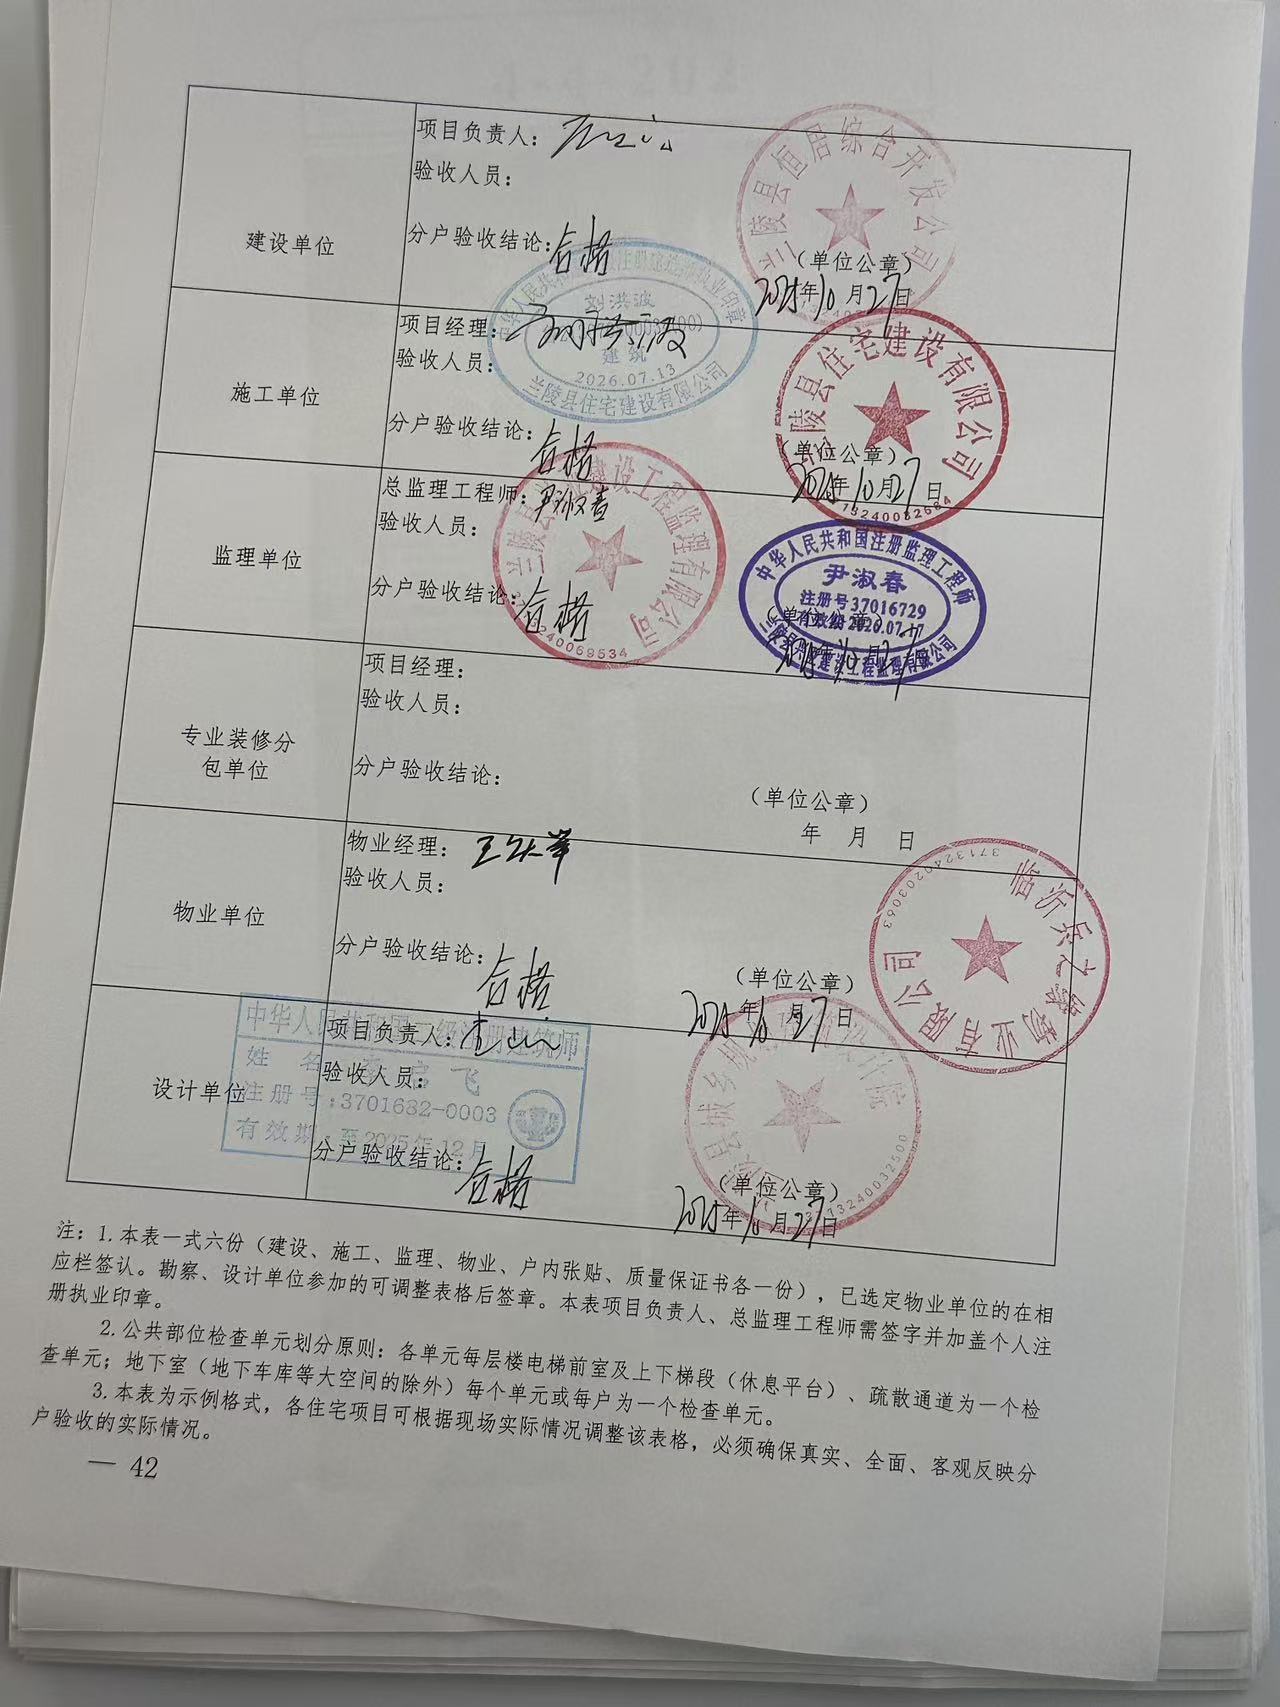 建设单位
项目负责人：
验收人员：
分户验收结论：合格
（单位公章）
2025年10月27日
兰陵县恒居综合开发公司
施工单位
项目经理：刘洪波
验收人员：
分户验收结论：合格
（单位公章）
2025年10月27日
刘洪波
建筑
2026.07.13
兰陵县住宅建设有限公司
兰陵县住宅建设有限公司
监理单位
总监理工程师：尹淑春
验收人员：
分户验收结论：合格
（单位公章）
建设工程监理有限公司
中华人民共和国注册监理工程师
尹淑春
注册号37016729
有效期2026.07.17
专业装修分
包单位
项目经理：
验收人员：
分户验收结论：
（单位公章）
年 月 日
物业单位
物业经理：
验收人员：
分户验收结论：合格
（单位公章）
2025年10月27日
物业有限公司
3713240203063
设计单位
项目负责人：
验收人员：
分户验收结论：合格
（单位公章）
2025年10月27日
姓名
注册号：3701632-0003
有效期：至2025年12月
注：1.本表一式六份（建设、施工、监理、物业、户内张贴、质量保证书各一份），已选定物业单位的在相
应栏签认。勘察、设计单位参加的可调整表格后签章。本表项目负责人、总监理工程师需签字并加盖个人注
册执业印章。
2.公共部位检查单元划分原则：各单元每层楼电梯前室及上下梯段（休息平台）、疏散通道为一个检
查单元；地下室（地下车库等大空间的除外）每个单元或每户为一个检查单元。
3.本表为示例格式，各住宅项目可根据现场实际情况调整该表格，必须确保真实、全面、客观反映分
户验收的实际情况。
— 42